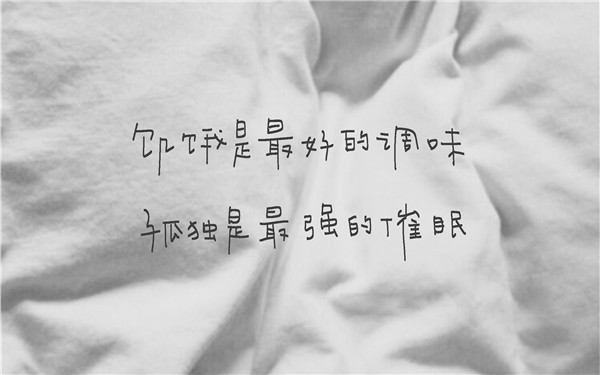 饥饿是最好的调味
孤独是最强的催眠